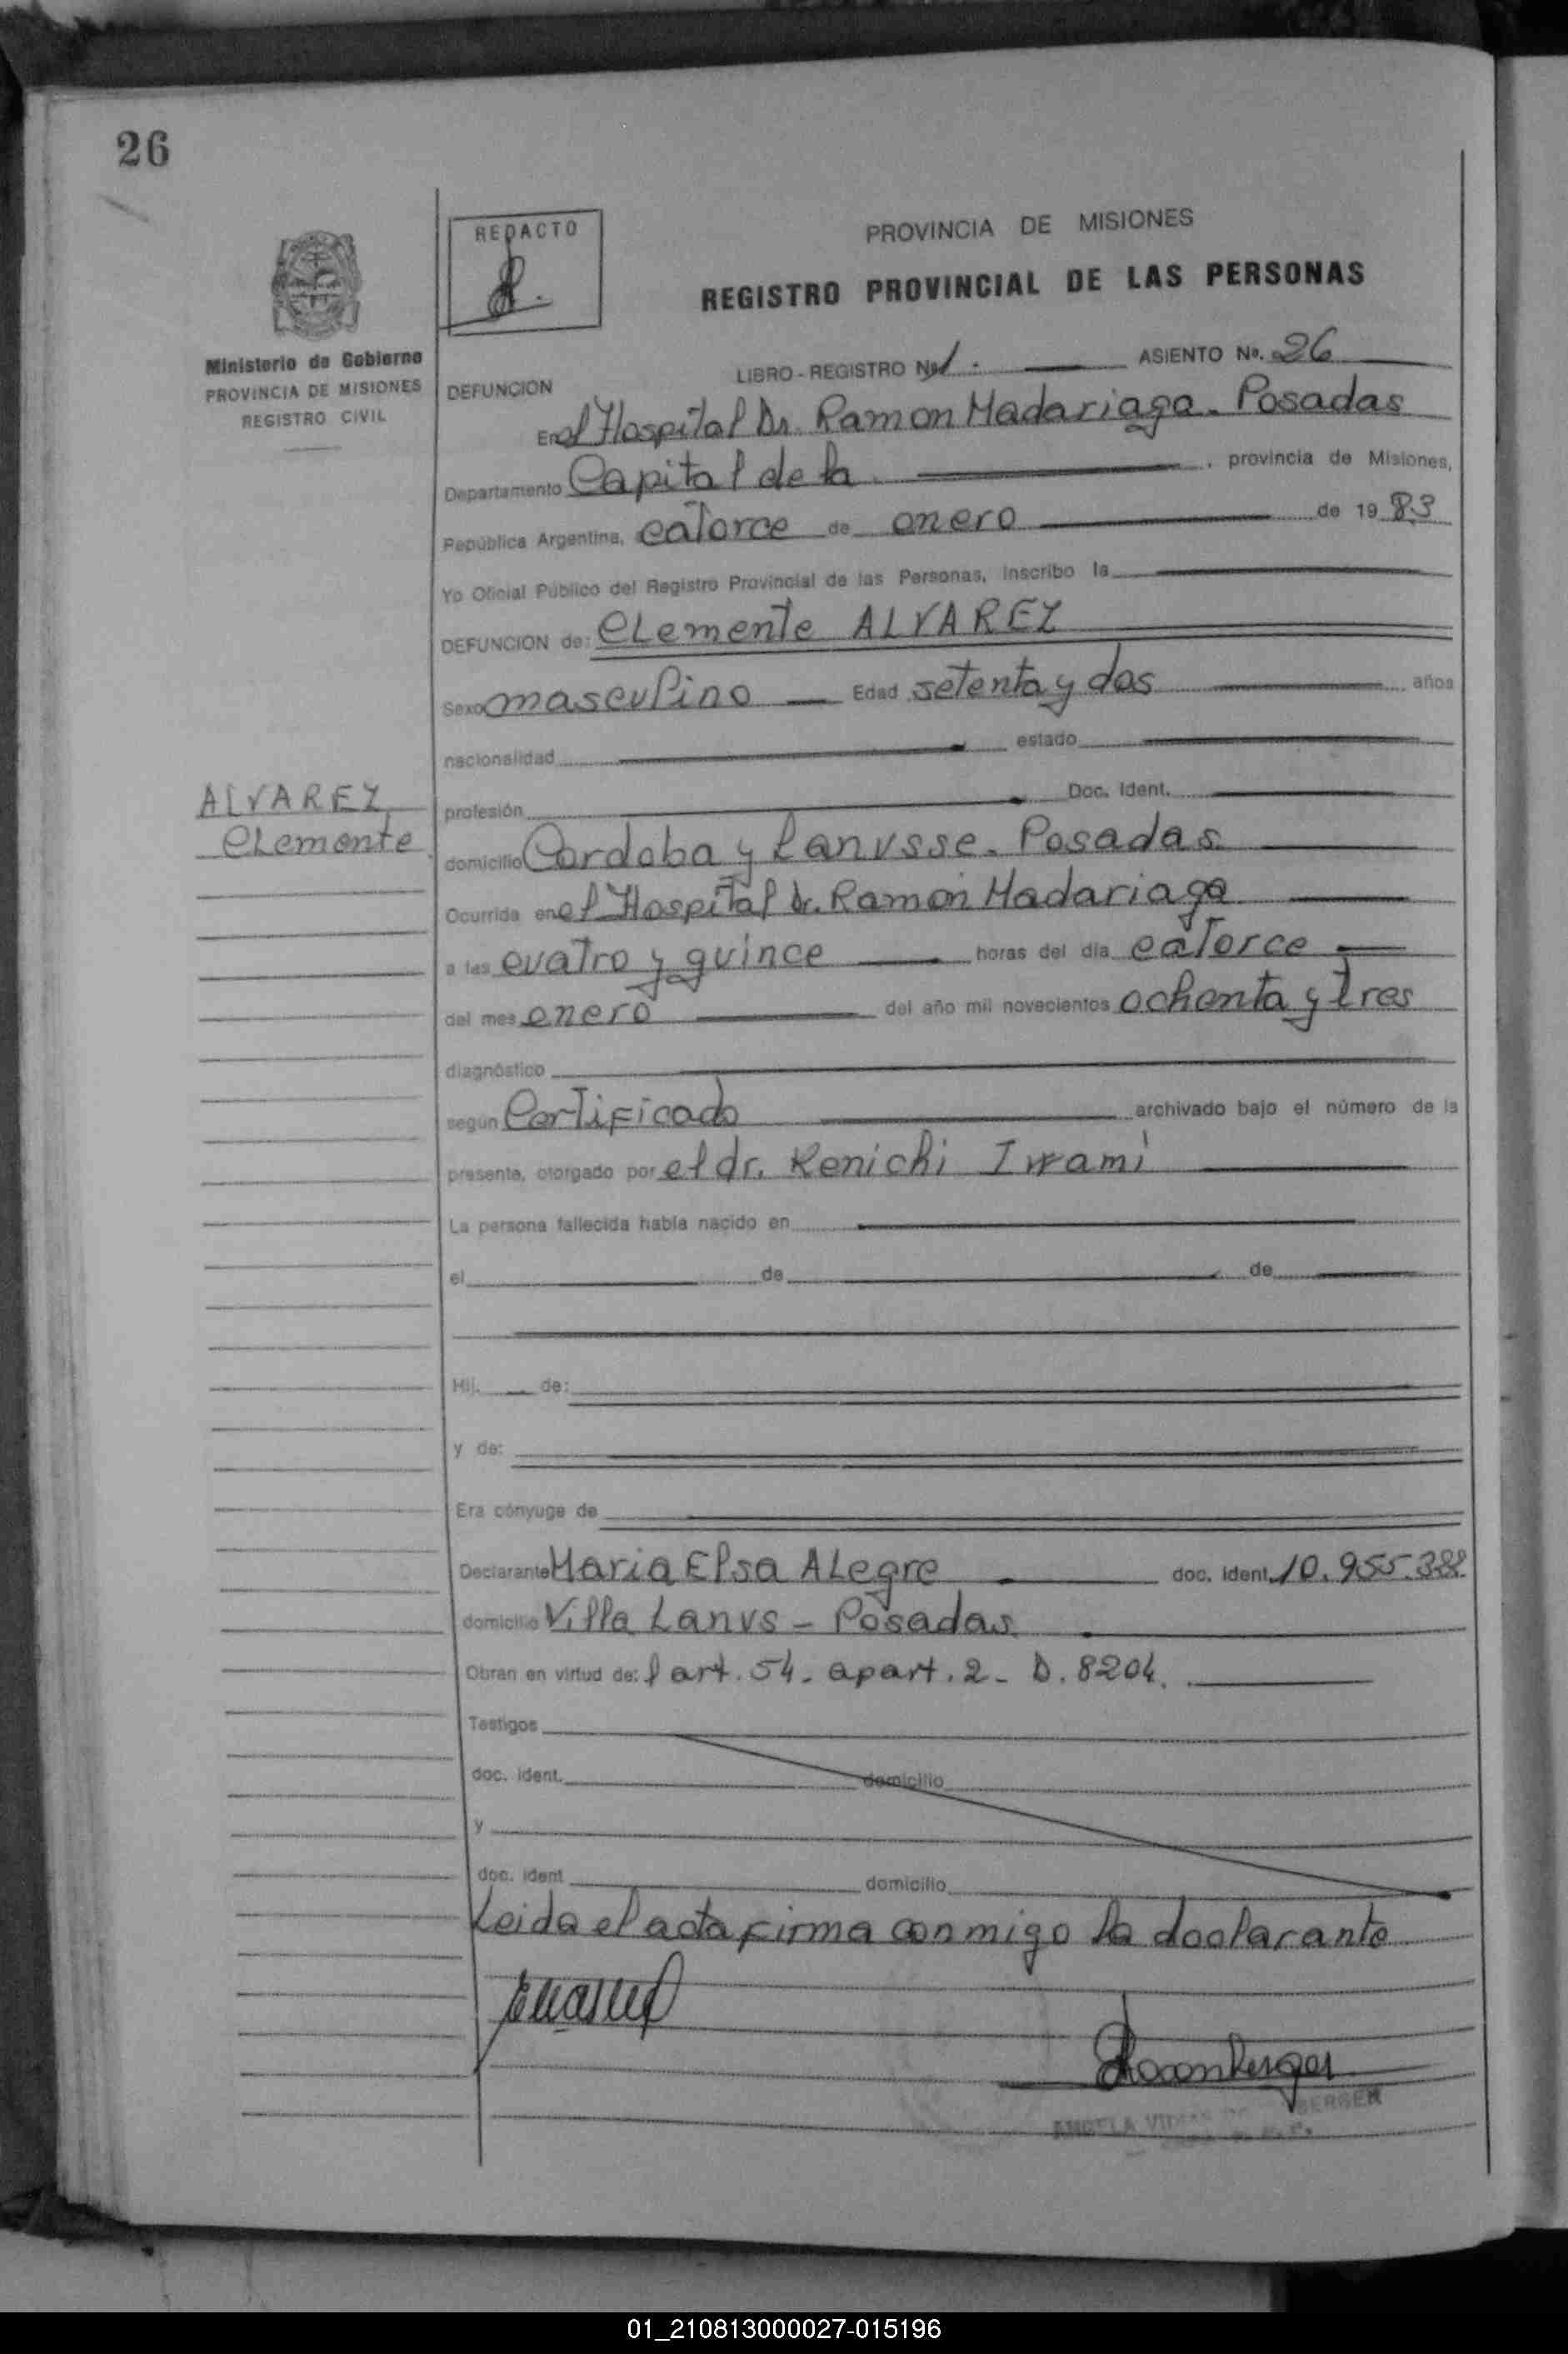 26
REDACTO
PROVINCIA DE MISIONES
REGISTRO PROVINCIAL DE LAS PERSONAS
Ministerio de Gobierno
PROVINCIA DE MISIONES
REGISTRO CIVIL
LIBRO - REGISTRO Nº 1. ASIENTO Nº. 26
DEFUNCION
En el Hospital Dr. Ramon Madariaga. Posadas
Departamento Capital de la , provincia de Misiones,
República Argentina, catorce de enero de 1983
Yo Oficial Público del Registro Provincial de las Personas, inscribo la
DEFUNCION de: Clemente ALVAREZ
Sexo masculino Edad setenta y dos años
nacionalidad estado
ALVAREZ
Clemente
profesión Doc. Ident.
domicilio Cordoba y Lanusse. Posadas
Ocurrida en el Hospital Dr. Ramon Madariaga
a las cuatro y quince horas del día catorce
del mes enero del año mil novecientos ochenta y tres
diagnóstico
según Certificado archivado bajo el número de la
presente, otorgado por el dr. Kenichi Iwami
La persona fallecida había nacido en
el de de
Hij. de:
y de:
Era cónyuge de
Declarante Maria Elsa Alegre doc. ident. 10.955.388
domicilio Villa Lanus - Posadas
Obran en virtud de: l art. 54. apart. 2 - D. 8204.
Testigos
doc. ident. domicilio
y
doc. ident domicilio
Leida el acta firma conmigo la declarante
01_210813000027-015196